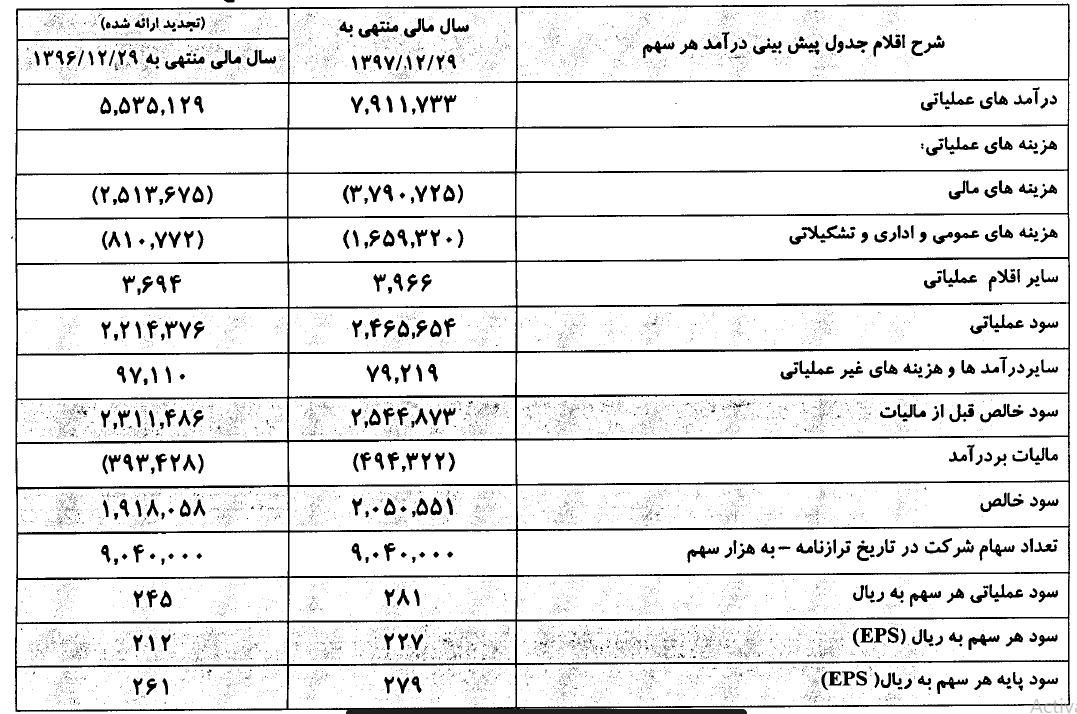 شرح اقلام جدول پیش بینی درآمد هر سهم | سال مالی منتهی به ۱۳۹۷/۱۲/۲۹ | (تجدید ارائه شده) سال مالی منتهی به ۱۳۹۶/۱۲/۲۹
درآمد های عملیاتی | ۷,۹۱۱,۷۳۳ | ۵,۵۳۵,۱۲۹
هزینه های عملیاتی:
هزینه های مالی | (۳,۷۹۰,۷۲۵) | (۲,۵۱۳,۶۷۵)
هزینه های عمومی و اداری و تشکیلاتی | (۱,۶۵۹,۳۲۰) | (۸۱۰,۷۷۲)
سایر اقلام عملیاتی | ۳,۹۶۶ | ۳,۶۹۴
سود عملیاتی | ۲,۴۶۵,۶۵۴ | ۲,۲۱۴,۳۷۶
سایردرآمد ها و هزینه های غیر عملیاتی | ۷۹,۲۱۹ | ۹۷,۱۱۰
سود خالص قبل از مالیات | ۲,۵۴۴,۸۷۳ | ۲,۳۱۱,۴۸۶
مالیات بردرآمد | (۴۹۴,۳۲۲) | (۳۹۳,۴۲۸)
سود خالص | ۲,۰۵۰,۵۵۱ | ۱,۹۱۸,۰۵۸
تعداد سهام شرکت در تاریخ ترازنامه – به هزار سهم | ۹,۰۴۰,۰۰۰ | ۹,۰۴۰,۰۰۰
سود عملیاتی هر سهم به ریال | ۲۸۱ | ۲۴۵
سود هر سهم به ریال (EPS) | ۲۲۷ | ۲۱۲
سود پایه هر سهم به ریال( EPS) | ۲۷۹ | ۲۶۱